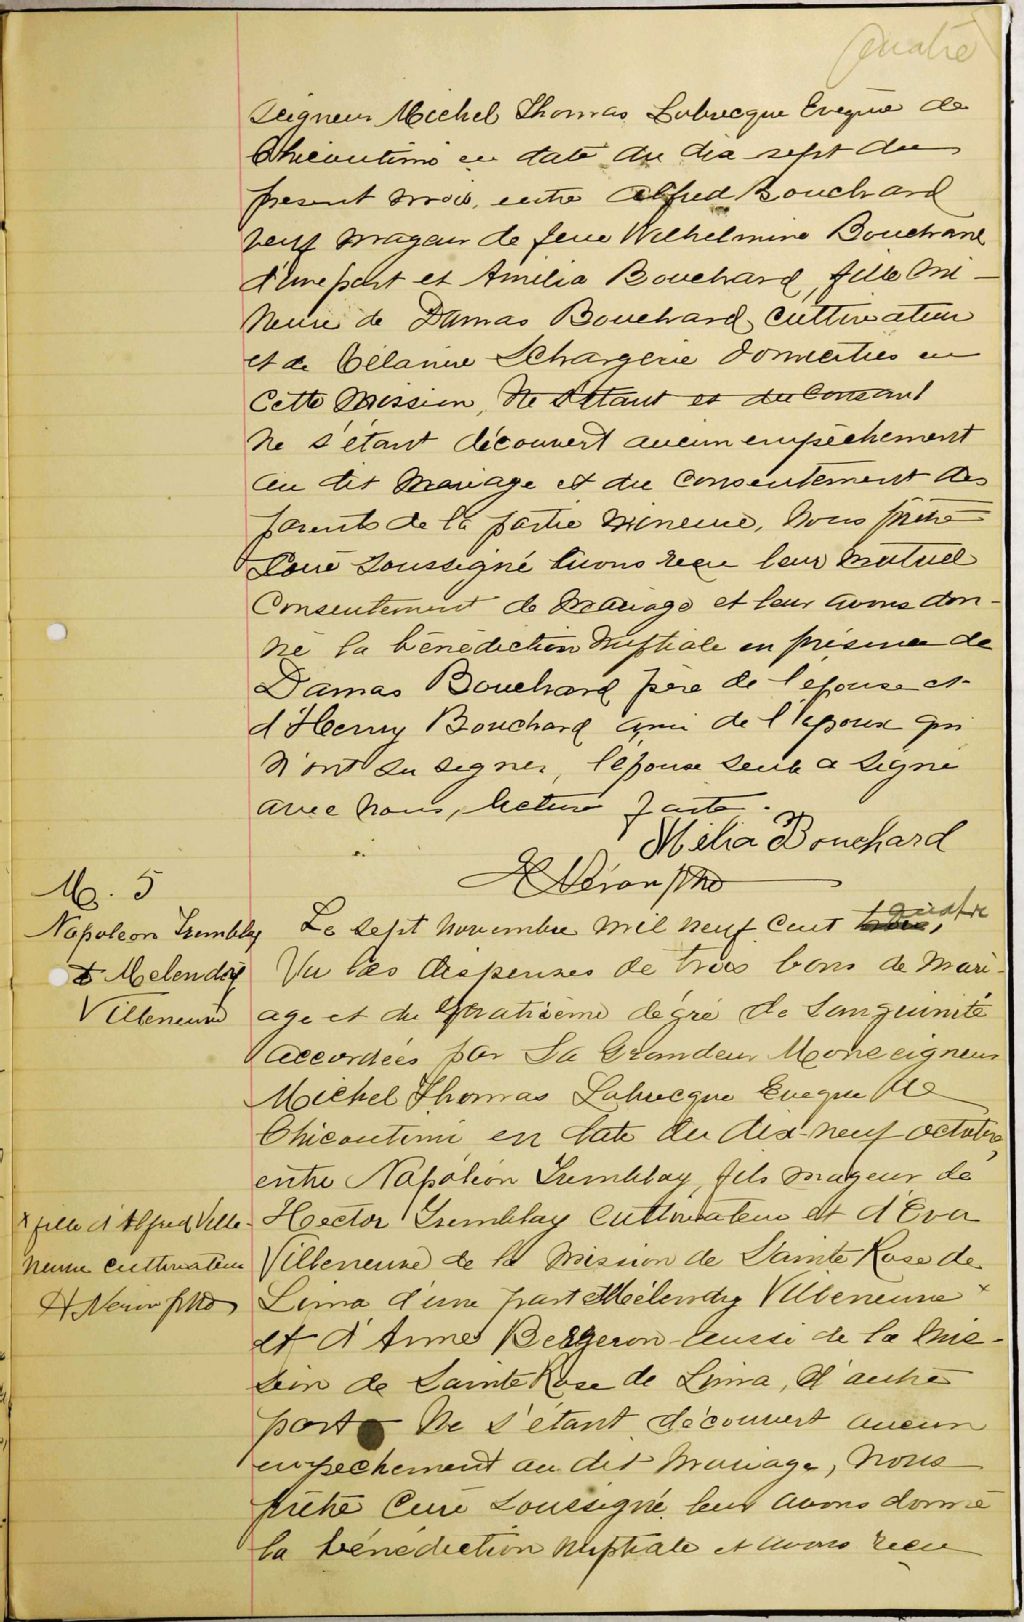 quatre
Seigneur Michel Thomas Labrecque Evêque de
Chicoutimi en date du dix sept du
present mois, entre Alfred Bouchard
veuf mageur de feue Wilhelmine Bouchard
d'une part et Amilia Bouchard, fille mi-
neure de Damas Bouchard, cultivateur
et de Célanire domiciliés en
cette mission, ne s'étant et du consant
ne s'étant découvert aucun empêchement
au dit mariage et du consentement des
parents de la partie mineure, nous prêtre
Curé soussigné avons reçu leur mutuel
consentement de mariage et leur avons don-
né la bénédiction nuptiale en présence de
Damas Bouchard père de l'épouse et
d'Henry Bouchard ami de l'époux qui
n'ont su signer, l'épouse seule a signé
avec nous, lecture faite.
Mélia Bouchard
H Néron ptre
M. 5
Napoléon Tremblay
& Melendy
Villeneuve
Le sept novembre mil neuf cent trois, quatre
Vu les dispenses de trois bans de mari-
age et du quatrième dégré de sanguinité
accordées par Sa Grandeur Monseigneur
Michel Thomas Labrecque Eveque de
Chicoutimi en date du dix-neuf octobre,
entre Napoléon Tremblay, fils mageur de
Hector Tremblay cultivateur et d'Eva
Villeneuve de la mission de Sainte Rose de
Lima d'une part et Mélendy Villeneuve x
et d'Anne Bergeron aussi de la mis-
sion de Sainte Rose de Lima, d'autre
part Ne s'étant découvert aucun
empechement au dit mariage, nous
prêtre Curé soussigné leur avons donné
la bénédiction nuptiale et avons reçu
x fille d'Alfred Ville-
neuve cultivateur
H Néron ptre